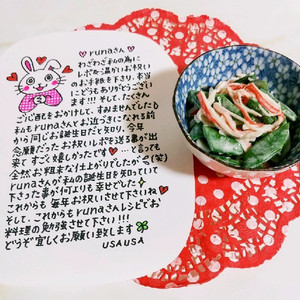 ♥ runaさん ♥
わざわざ私の為に
レポを温かいお祝い
のお手紙を下さり、本当
にどうもありがとうござい
ます!!! そして、たくさん
ご心配をおかけして、すみませんでした
私もrunaさんとお近づきになれる前
から同じお誕生日だと知り、今年
念願だったお祝いレポを送る事が出
来て すごく嬉しかったです♥ …と言っても
全然お粗末な仕上がりでしたが(笑)
runaさんが私の誕生日を知っていて
下さった事が何よりも幸せでした
これからも 毎年お祝いさせて下さいね♥
そして、これからもrunaさんレシピでお
料理の勉強させて下さい!!!
どうぞ宜しくお願い致します
USAUSA